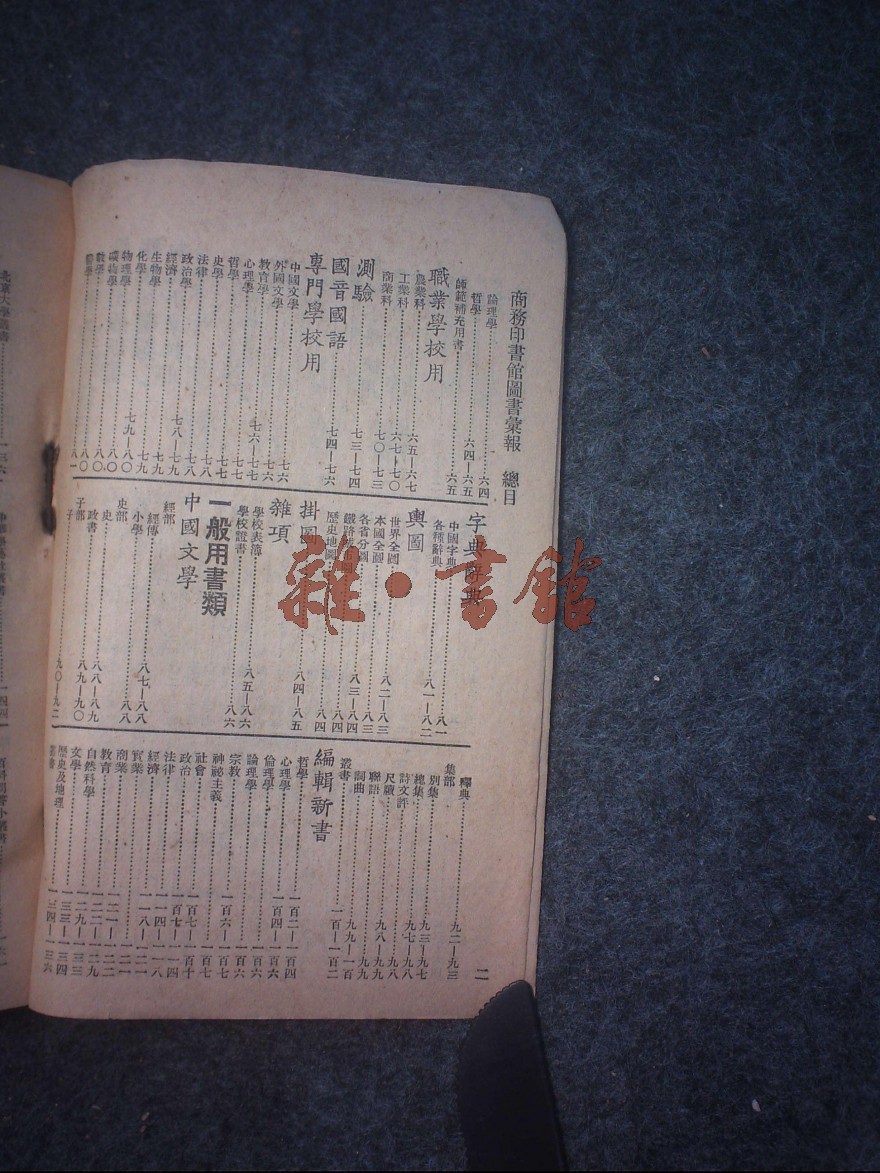 商務印書館圖書彙報　總目
二
論理學……六四
哲學……六四—六五
師範補充用書……六五
職業學校用
農業科……六五—六七
工業科……六七—七〇
商業科……七〇—七三
測驗……七三—七四
國音國語……七四—七六
專門學校用
中國文學……七六
外國文學……七六
教育學……七六—七七
心理學……七七
哲學……七七
史學……七七
法律……七八
政治學……七八
經濟……七八—七九
生物學……七九
化學……七九
物理學……七九—八〇
礦物學……八〇
數學……八〇
醫學……八一
字典辭典
中國字典……八一
各種辭典……八一—八二
輿圖
世界全圖……八二—八三
本國全圖……八三
各省分圖……八三—八四
鐵路
歷史地圖……八四
掛圖……八四—八五
雜項
學校表簿……八五—八六
學校證書……八六
一般用書類
中國文學
經部
經傳……八七—八八
小學……八八
史部
史……八八—八九
政書……八九—九〇
子部
子……九〇—九二
釋典……九二—九三
集部
別集……九三—九七
總集……九七—九八
詩文評……九八
尺牘……九八—九九
聯語……九九
詞曲……九九—一百
叢書……一百—一百二
編輯新書
哲學……一百二—一百四
心理學……一百四—一百六
倫理學……一百六
論理學……一百六
宗教……一百六—一百七
神祕主義……一百七
社會……一百七—一百十
政治……一百七—一一四
法律……一一四—一一八
經濟……一一八—一二一
實業……一二一
商業……一二一—一二二
教育……一二二—一二九
自然科學……一二九—一三三
文學……一三三—一三四
歷史及地理……一三四—一三六
叢書
北京大學叢書
一三六
雜·書館